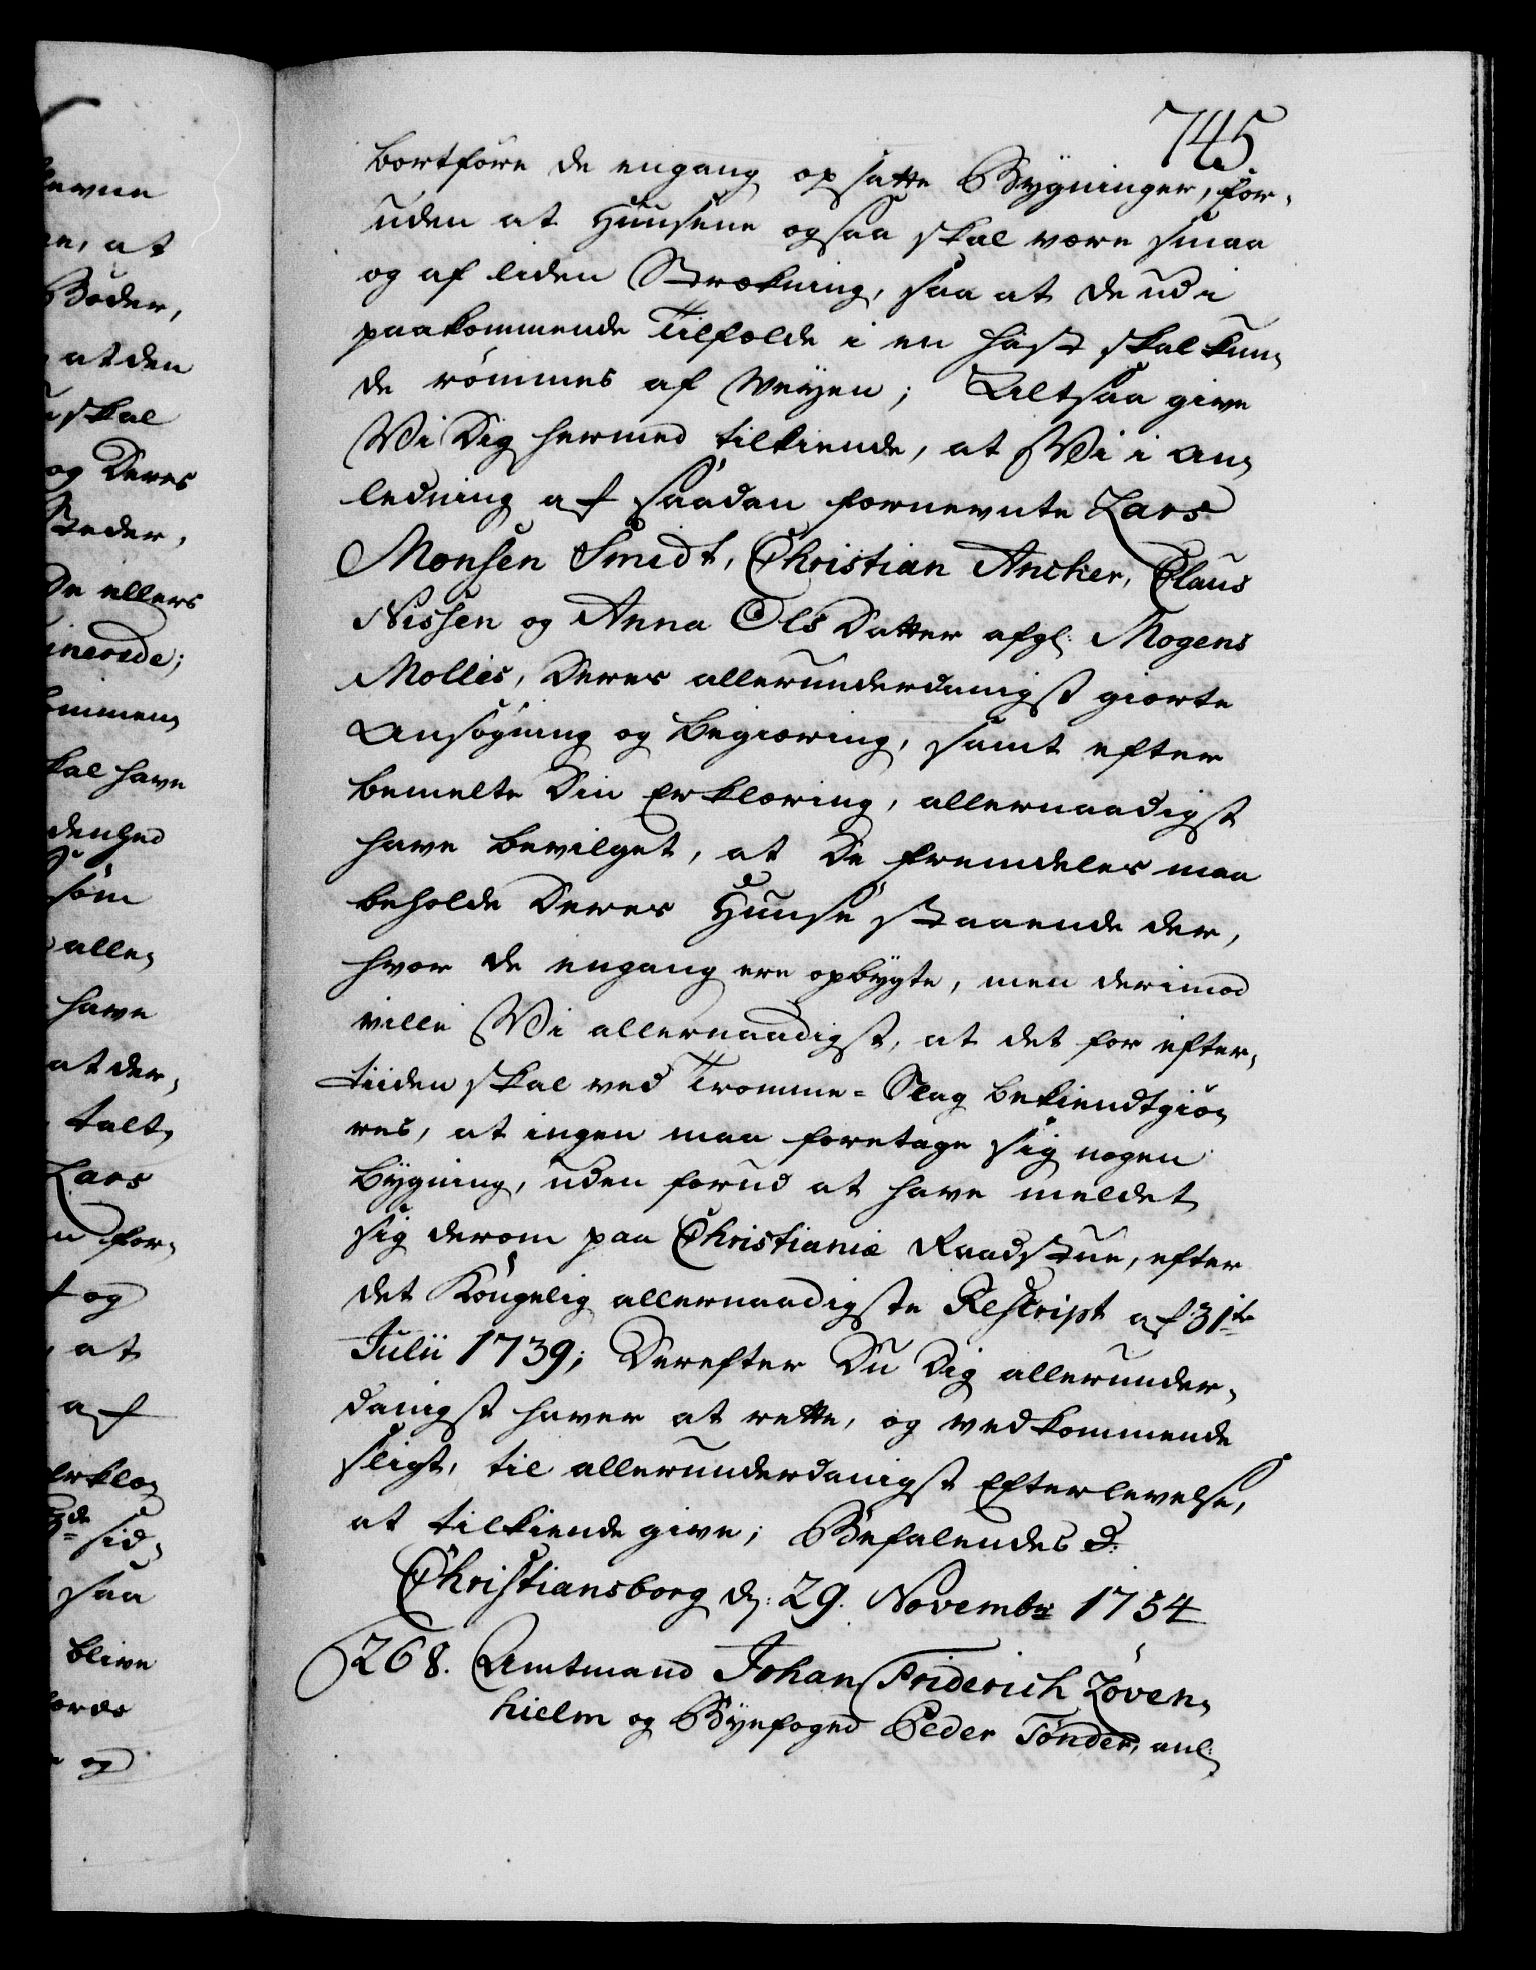 745
bortföre de engang opsatte Bygninger, for-
uden at Huusene ogsaa skal være smaa
og af liden Strækning, saa at de udi
paakommende Tilfælde i en Hast skal kun-
de römmes af Weyen; Altsaa give
Vi Dig hermed tilkiende, at Vi i An-
ledning af saadan fornevnte Lars
Monsen Smidt, Christian Ancher, Claus
Nissen og Anna Ols Datter afgl: Mogens
Mollies, Deres allerunderdanigst giorte
Ansögning og Begiæring, samt efter
bemelte Din Erklæring, allernaadigst
have bevilget, at De fremdeles maa
beholde Deres Huuse staaende der,
hvor de engang ere opbygte, men derimod
ville Vi allernaadigst, at det for efter-
tiiden skal ved Tromme-Slag bekiendtgiö-
res, at ingen maa foretage sig nogen
Bygning, uden forud at have meldet
sig derom paa Christianiæ Raadstue, efter
det Kongelig allernaadigste Rescript af 31te
Julii 1739; Derefter Du Dig allerunder-
danigst haver at rette, og vedkommende
sligt, til allerunderdanigst Efterlevelse,
at tilkiende give; Befalendes d:
Christiansborg d: 29. Novembr 1754
268. Amtmand Johan Friderich Löven-
hielm og Byefoged Peder Tönder, anl:
evne
e, at
Boder,
at den
skal
og Deres
Steder,
De ellers
inerede;
kommen
skal have
denhed
söm
alle-
have
at der-
talt,
Lars
n for-
t og
, at
af
Erklæ-
3de sid-
saa
blive
og